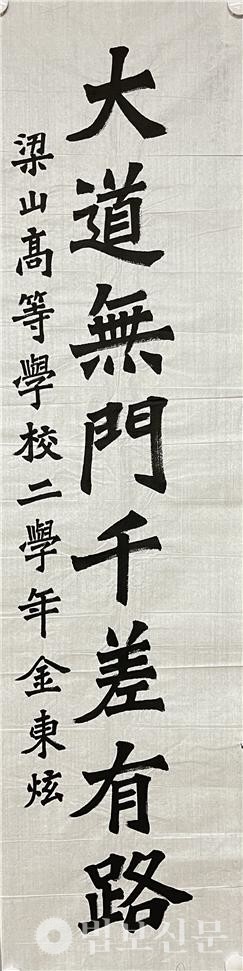 大道無門千差有路
梁山高等學校二學年金東炫
법보신문